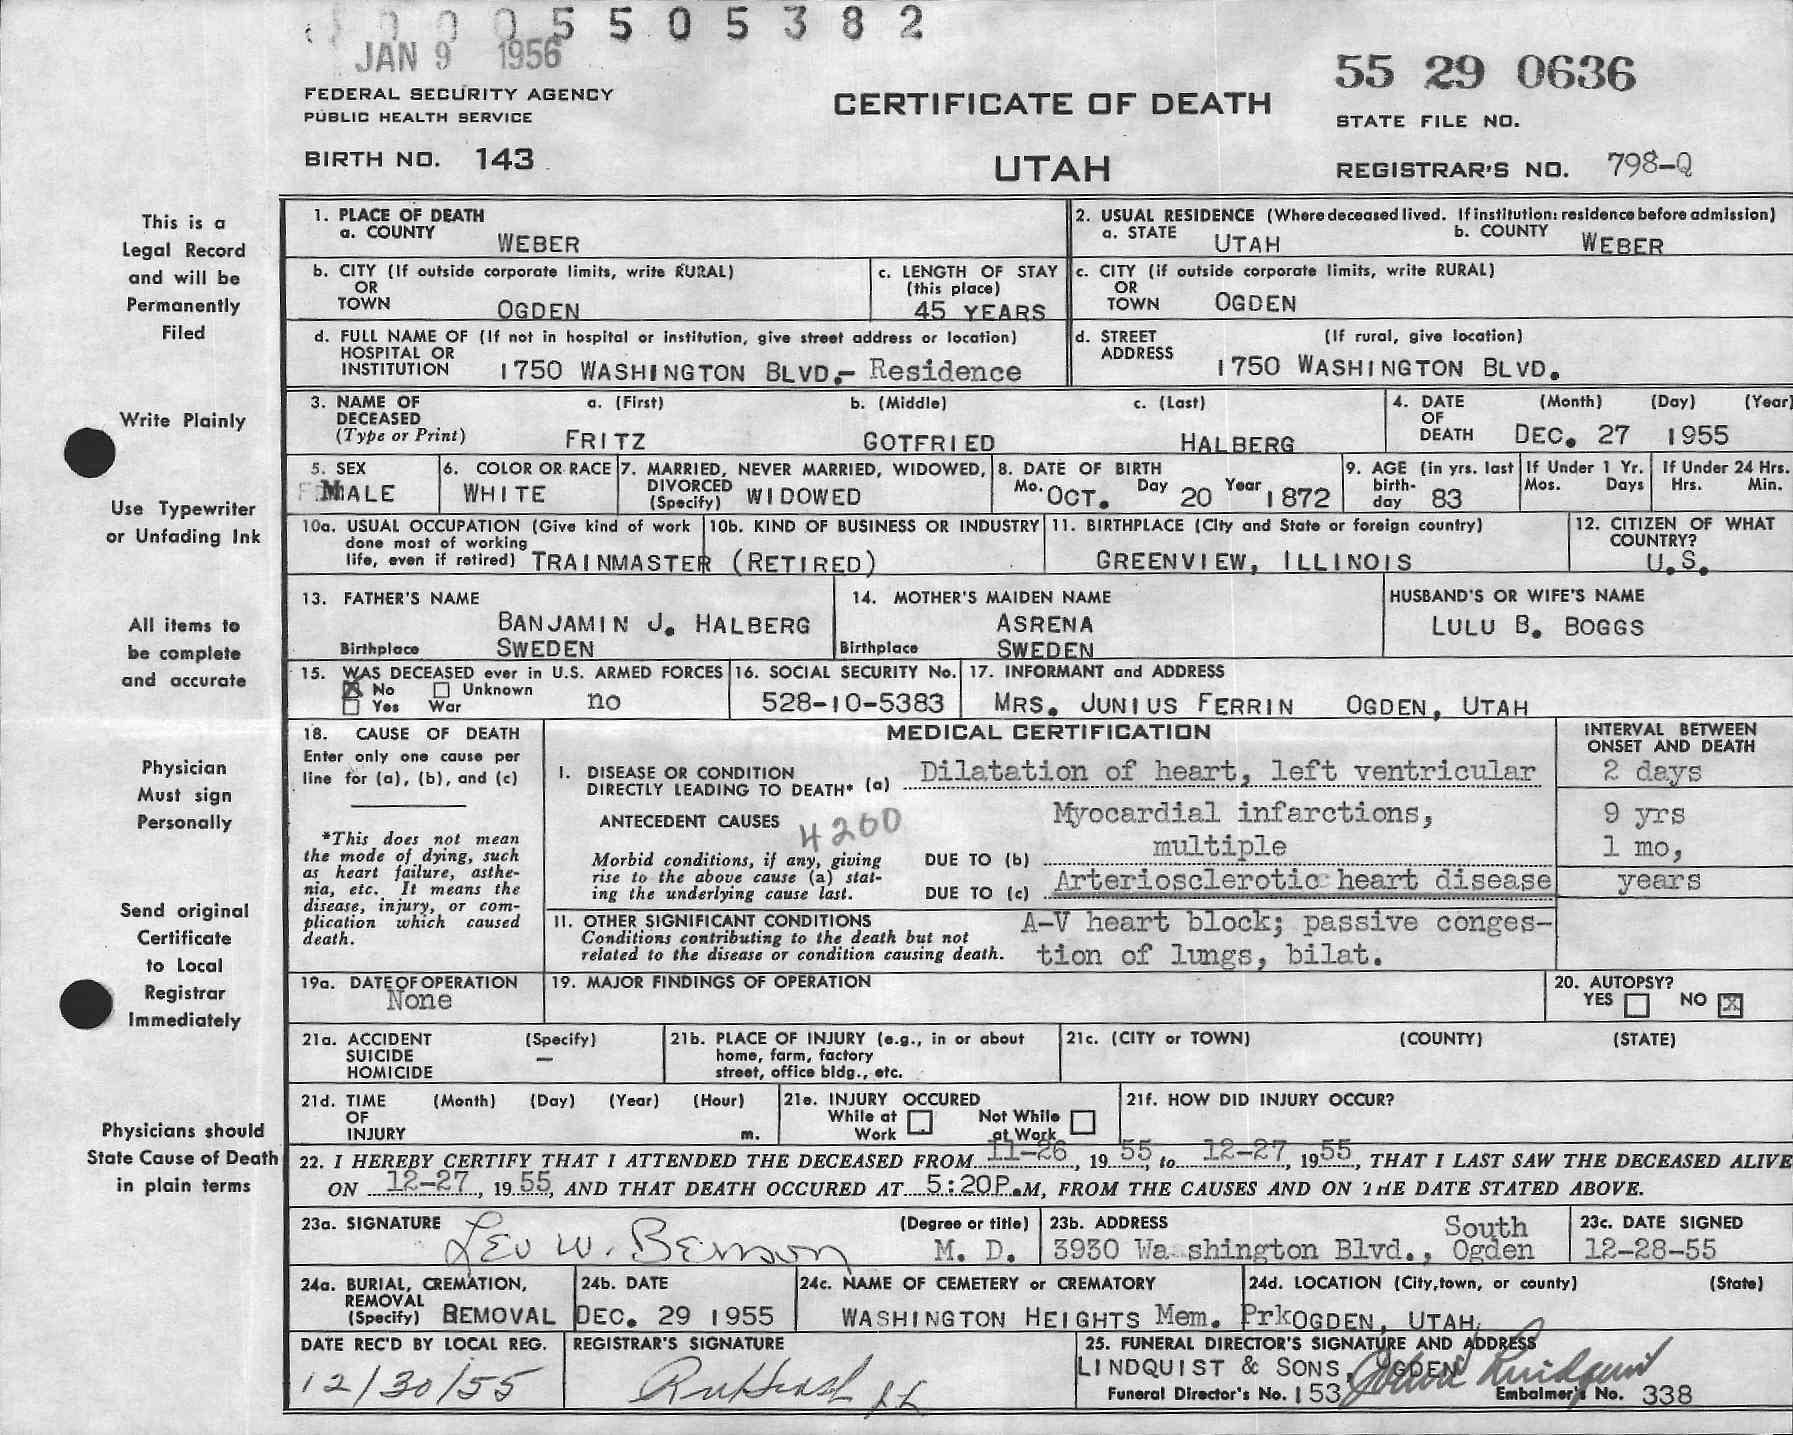 0005505382
JAN 9 1956
55 29 0636
FEDERAL SECURITY AGENCY
PUBLIC HEALTH SERVICE
CERTIFICATE OF DEATH
STATE FILE NO.
BIRTH NO. 143
UTAH
REGISTRAR'S NO. 798-Q
This is a
Legal Record
and will be
Permanently
Filed
Write Plainly
Use Typewriter
or Unfading Ink
All items to
be complete
and accurate
Physician
Must sign
Personally
Send original
Certificate
to Local
Registrar
Immediately
Physicians should
State Cause of Death
in plain terms
1. PLACE OF DEATH
a. COUNTY WEBER
2. USUAL RESIDENCE (Where deceased lived. If institution: residence before admission)
a. STATE UTAH b. COUNTY WEBER
b. CITY (If outside corporate limits, write RURAL)
OR
TOWN OGDEN
c. LENGTH OF STAY
(this place)
45 YEARS
c. CITY (if outside corporate limits, write RURAL)
OR
TOWN OGDEN
d. FULL NAME OF (If not in hospital or institution, give street address or location)
HOSPITAL OR
INSTITUTION 1750 WASHINGTON BLVD.- Residence
d. STREET (If rural, give location)
ADDRESS
1750 WASHINGTON BLVD.
3. NAME OF a. (First) b. (Middle) c. (Last)
DECEASED
(Type or Print) FRITZ GOTFRIED HALBERG
4. DATE (Month) (Day) (Year)
OF
DEATH DEC. 27 1955
5. SEX
MALE
6. COLOR OR RACE
WHITE
7. MARRIED, NEVER MARRIED, WIDOWED,
DIVORCED
(Specify) WIDOWED
8. DATE OF BIRTH
Mo. OCT. Day 20 Year 1872
9. AGE (in yrs. last
birth-
day 83
If Under 1 Yr.
Mos. Days
If Under 24 Hrs.
Hrs. Min.
10a. USUAL OCCUPATION (Give kind of work
done most of working
life, even if retired) TRAINMASTER (RETIRED)
10b. KIND OF BUSINESS OR INDUSTRY
11. BIRTHPLACE (City and State or foreign country)
GREENVIEW, ILLINOIS
12. CITIZEN OF WHAT
COUNTRY?
U.S.
13. FATHER'S NAME
BANJAMIN J. HALBERG
Birthplace SWEDEN
14. MOTHER'S MAIDEN NAME
ASRENA
Birthplace SWEDEN
HUSBAND'S OR WIFE'S NAME
LULU B. BOGGS
15. WAS DECEASED ever in U.S. ARMED FORCES
No Unknown no
Yes War
16. SOCIAL SECURITY No.
528-10-5383
17. INFORMANT and ADDRESS
MRS. JUNIUS FERRIN OGDEN, UTAH
18. CAUSE OF DEATH
Enter only one cause per
line for (a), (b), and (c)
*This does not mean
the mode of dying, such
as heart failure, asthe-
nia, etc. It means the
disease, injury, or com-
plication which caused
death.
MEDICAL CERTIFICATION
INTERVAL BETWEEN
ONSET AND DEATH
I. DISEASE OR CONDITION
DIRECTLY LEADING TO DEATH* (a) Dilatation of heart, left ventricular 2 days
ANTECEDENT CAUSES 4200
Myocardial infarctions, 9 yrs
Morbid conditions, if any, giving
rise to the above cause (a) stat-
ing the underlying cause last.
DUE TO (b) multiple 1 mo,
DUE TO (c) Arteriosclerotic heart disease years
II. OTHER SIGNIFICANT CONDITIONS
Conditions contributing to the death but not
related to the disease or condition causing death.
A-V heart block; passive conges-
tion of lungs, bilat.
19a. DATE OF OPERATION
None
19. MAJOR FINDINGS OF OPERATION
20. AUTOPSY?
YES NO
21a. ACCIDENT (Specify)
SUICIDE -
HOMICIDE
21b. PLACE OF INJURY (e.g., in or about
home, farm, factory
street, office bldg., etc.
21c. (CITY or TOWN) (COUNTY) (STATE)
21d. TIME (Month) (Day) (Year) (Hour)
OF
INJURY m.
21e. INJURY OCCURED
While at Not While
Work at Work
21f. HOW DID INJURY OCCUR?
22. I HEREBY CERTIFY THAT I ATTENDED THE DECEASED FROM 11-26, 19 55, to 12-27, 19 55, THAT I LAST SAW THE DECEASED ALIVE
ON 12-27, 19 55, AND THAT DEATH OCCURED AT 5:20P.M, FROM THE CAUSES AND ON THE DATE STATED ABOVE.
23a. SIGNATURE (Degree or title)
Leo W. Benson M. D.
23b. ADDRESS South
3930 Washington Blvd., Ogden
23c. DATE SIGNED
12-28-55
24a. BURIAL, CREMATION,
REMOVAL
(Specify) BEMOVAL
24b. DATE
DEC. 29 1955
24c. NAME OF CEMETERY or CREMATORY
WASHINGTON HEIGHTS Mem. Prk
24d. LOCATION (City,town, or county) (State)
OGDEN, UTAH
DATE REC'D BY LOCAL REG.
12/30/55
REGISTRAR'S SIGNATURE
25. FUNERAL DIRECTOR'S SIGNATURE AND ADDRESS
LINDQUIST & SONS, OGDEN
Funeral Director's No. 153 Embalmer's No. 338